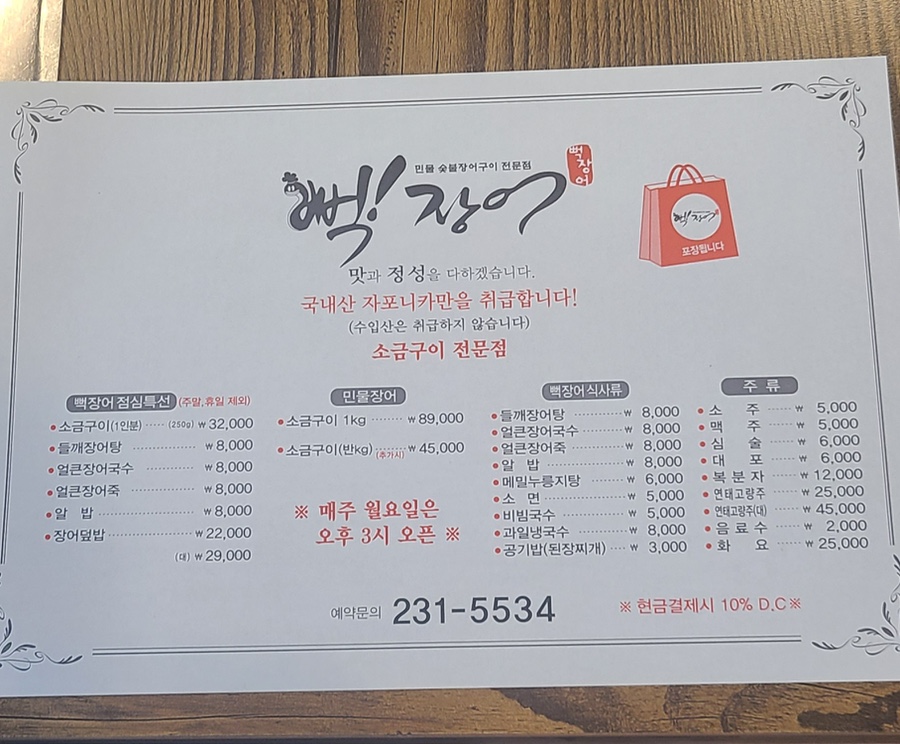 민물 숯불장어구이 전문점
뻑! 장어
뻑장어
뻑! 장어
포장됩니다
맛과 정성을 다하겠습니다.
국내산 자포니카만을 취급합니다!
(수입산은 취급하지 않습니다)
소금구이 전문점
뻑장어점심특선 (주말,휴일 제외)
소금구이(1인분) ····· (250g) ₩ 32,000
들깨장어탕 ₩ 8,000
얼큰장어국수 ₩ 8,000
얼큰장어죽 ₩ 8,000
알 밥 ₩ 8,000
장어덮밥 ₩ 22,000
(대) ₩ 29,000
민물장어
소금구이 1kg ₩ 89,000
소금구이(반kg) (추가시) ₩ 45,000
※ 매주 월요일은
오후 3시 오픈 ※
뻑장어식사류
들깨장어탕 ₩ 8,000
얼큰장어국수 ₩ 8,000
얼큰장어죽 ₩ 8,000
알 밥 ₩ 8,000
메밀누룽지탕 ₩ 6,000
소 면 ₩ 5,000
비빔국수 ₩ 5,000
과일냉국수 ₩ 8,000
공기밥(된장찌개) ₩ 3,000
주 류
소 주 ₩ 5,000
맥 주 ₩ 5,000
심 술 ₩ 6,000
대 포 ₩ 6,000
복 분 자 ₩ 12,000
연태고량주 ₩ 25,000
연태고량주(대) ₩ 45,000
음 료 수 ₩ 2,000
화 요 ₩ 25,000
예약문의 231-5534
※ 현금결제시 10% D.C※